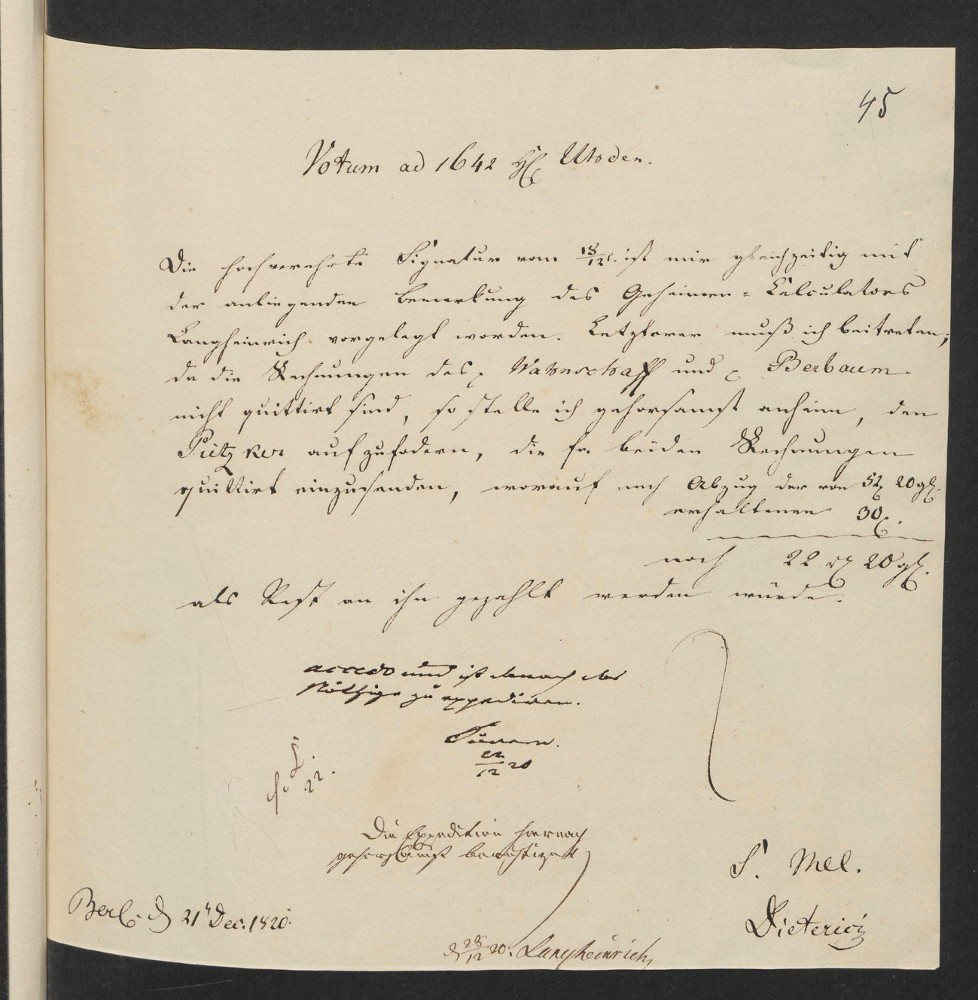 45
Votum ad 1642 Uhden.
Die hochverehrte Signatur vom 18/12 ist mir gleichzeitig mit
der anliegenden Bemerkung des Geheimen-Calculators
Langheinrich vorgelegt worden. Letzterer muß ich beitreten;
da die Rechnungen des Wahnschaff und Berbaum
nicht quittirt sind, so stelle ich gehorsamst anheim, den
Pietzker aufzufodern, die beiden Rechnungen
quittirt einzusenden, worauf nach Abzug der von 52 20 gl.
erhaltenen 30
noch 22 20 gl.
als Rest an ihn gezahlt werden würde.
accedo und ist danach das
Nöthige zu expediren.
22/12 20
22.
Die Expedition hiernach
gehorsamst berichtiget
28/12 20. Langheinrich
S. Mel.
Dieterici
Berl. d 21t Dec. 1820.